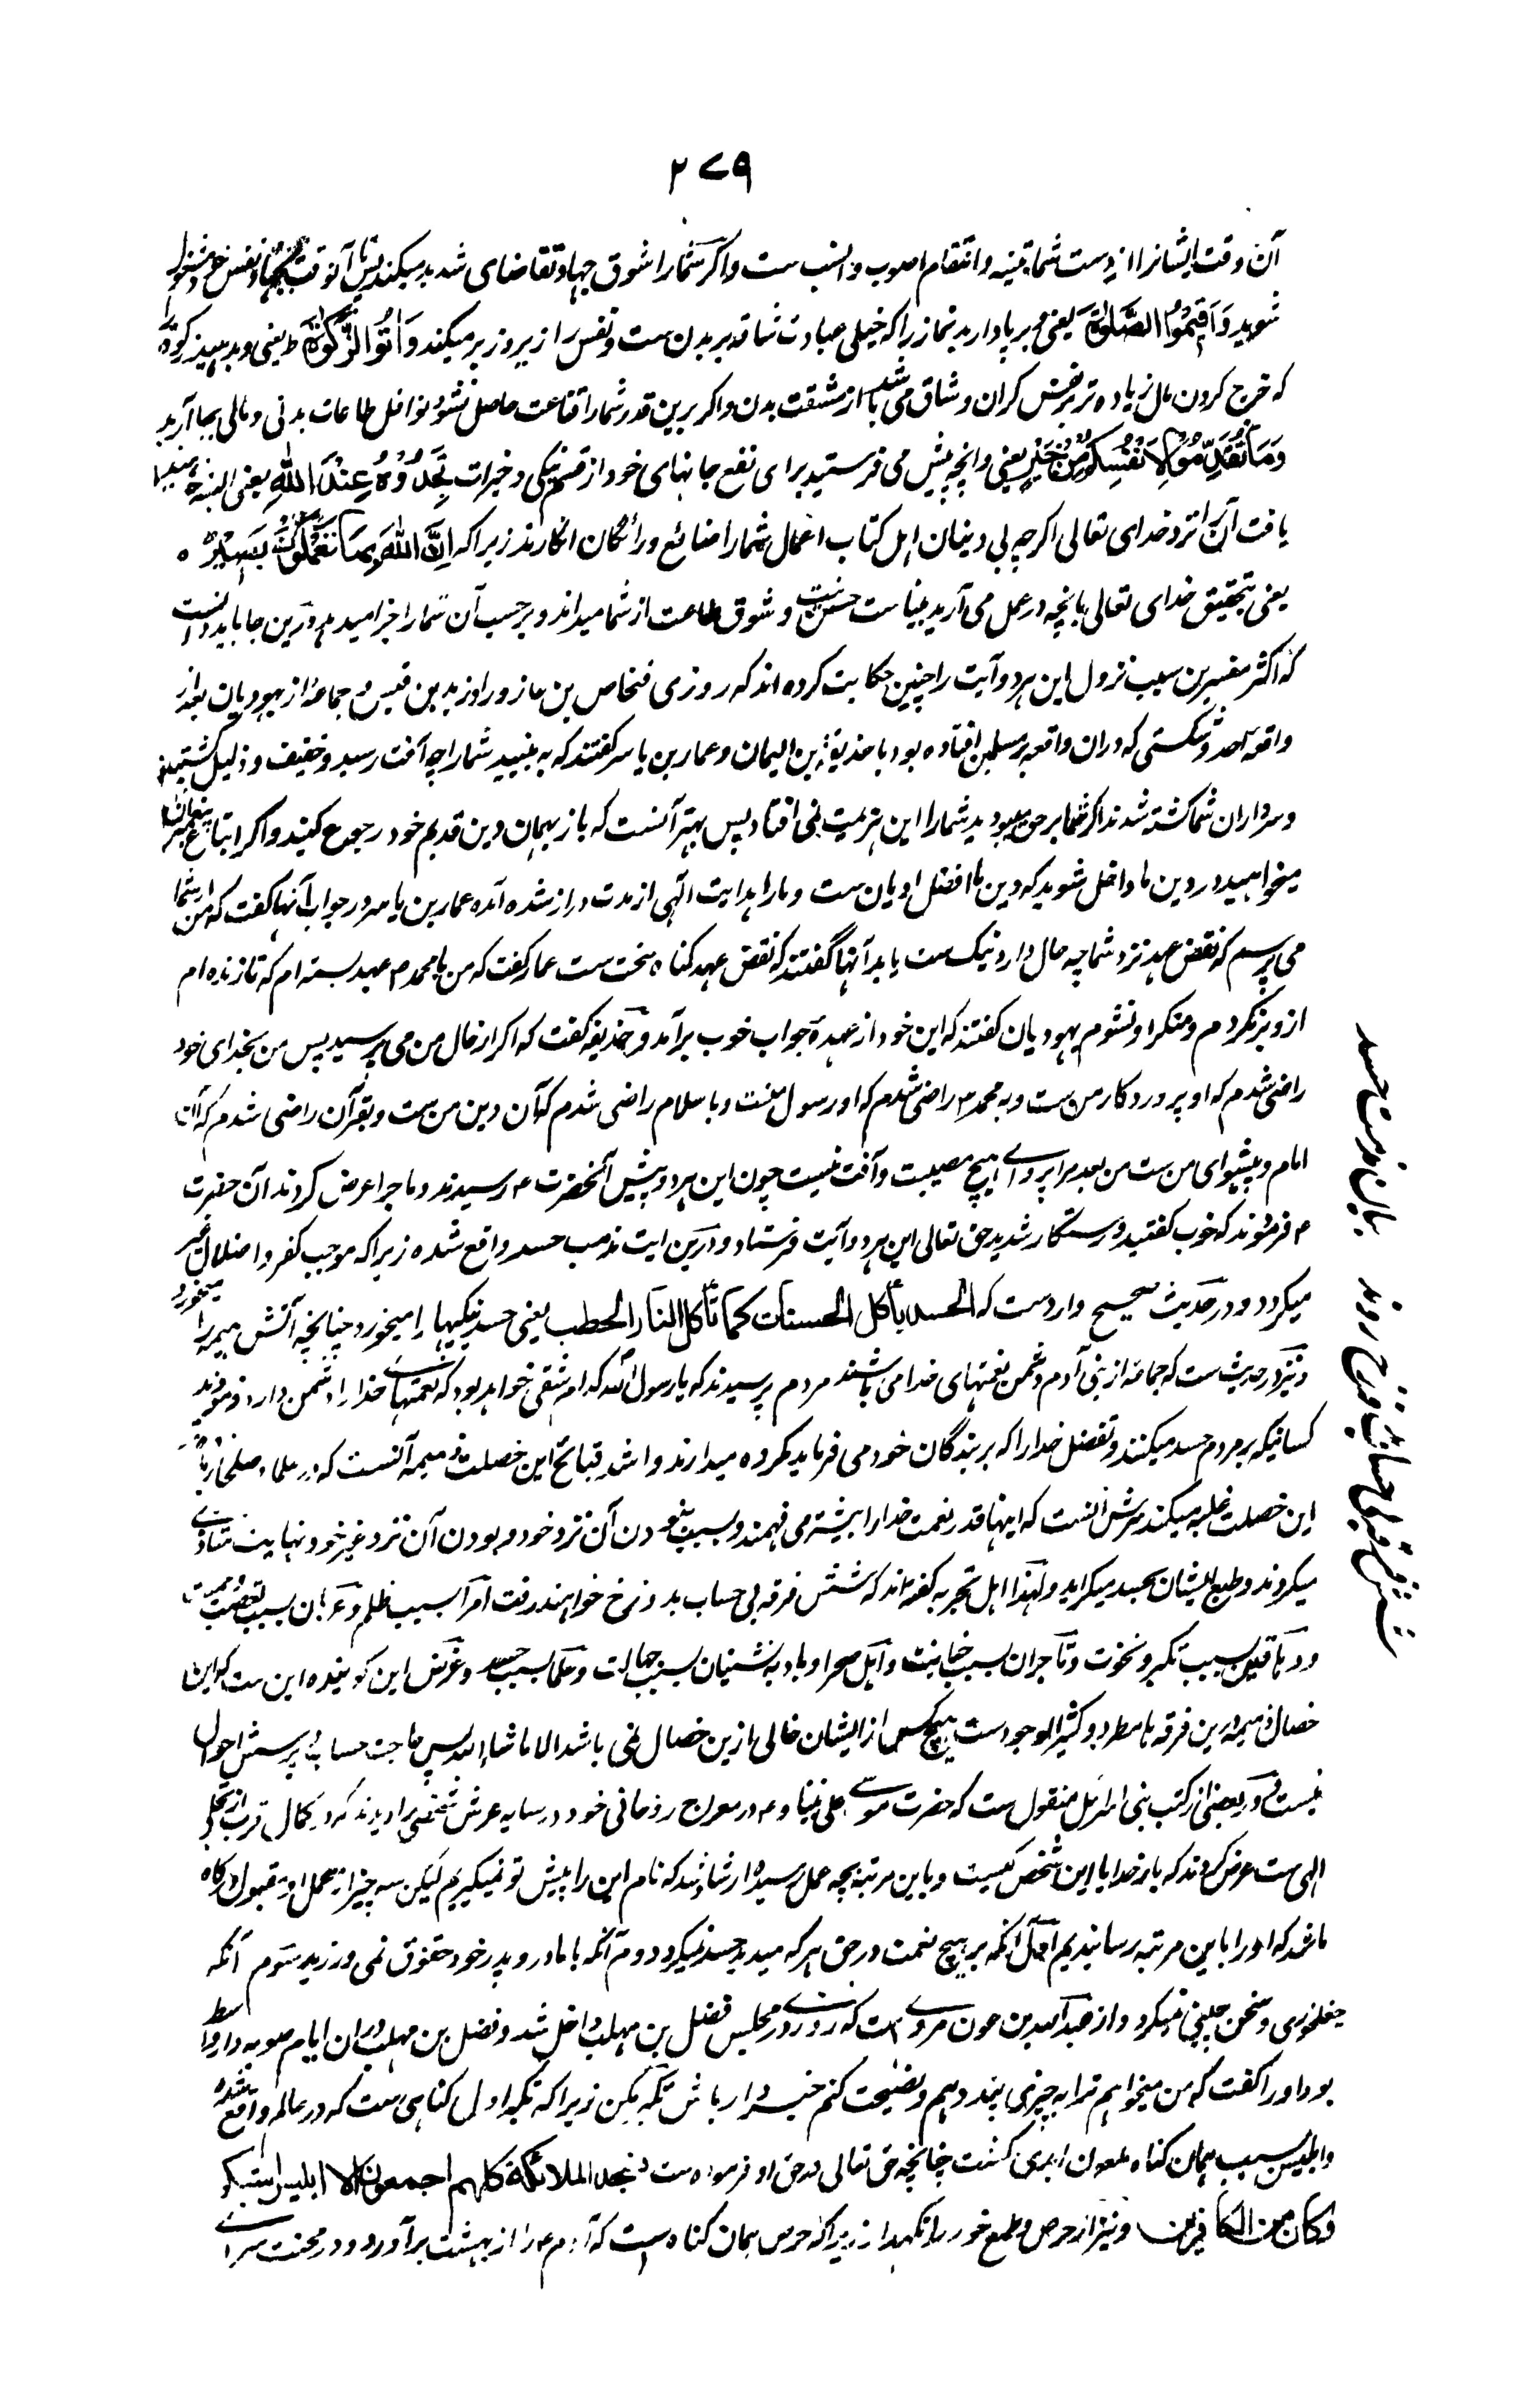 ۲۷۹
آن وقت ایشانرا از دست شما تنبیه و انتقام اصوب و انسب ست و اگر شما را شوق جهاد تقاضای شدید میکند پس تا آنوقت بجهاد نفس خود مشغول
شوید وَاَقِیْمُوا الصَّلٰوةَ یعنی و برپا دارید نماز را که خیلی عبادت شاقه بر بدن ست و نفس را زیر و زبر میکند وَاٰتُوا الزَّکٰوةَ ط یعنی و بدهید زکوة را
که خرج کردن مال زیاده تر بر نفس گران و شاق می باشد از مشقت بدن و اگر برین قدر شما را قناعت حاصل نشود نوافل طاعات بدنی و مالی بجا آرید
وَمَا تُقَدِّمُوْا لِاَنْفُسِکُمْ مِّنْ خَیْرٍ یعنی و انچه پیش می فرستید برای نفع جانهای خود از قسم نیکی و خیرات تَجِدُوْهُ عِنْدَ اللّٰهِ یعنی البته خواهید
یافت آن را نزد خدای تعالی اگرچه بی دینان اهل کتاب اعمال شما را ضائع و رائگان انگارند زیرا که اِنَّ اللّٰهَ بِمَا تَعْمَلُوْنَ بَصِیْرٌ ه
یعنی بتحقیق خدای تعالی بانچه در عمل می آرید بیناست حسن نیت و شوق طاعت از شما میداند و بر حسب آن شما را جزا میدهد و درین جا باید دانست
که اکثر مفسرین سبب نزول این هر دو آیت را چنین حکایت کرده اند که روزی فنخاص بن عازورا و زید بن قیس و جماعهٔ از یهودیان بعد از
واقعهٔ احد و شکستی که دران واقعه بر مسلمین افتاده بود با حذیفة بن الیمان و عمار بن یاسر گفتند که به بینید شما را چه آفت رسید و خفیف و ذلیل گشتید
و سرداران شما کشته شدند اگر شما بر حق میبودید شما را این هزیمت نمی افتاد پس بهتر آنست که باز بهمان دین قدیم خود رجوع کنید و اگر اتباع پیغمبران
میخواهید در دین ما داخل شوید که دین ما افضل ادیان ست و ما را هدایت الٰهی از مدت دراز شده آمده عمار بن یاسر در جواب آنها گفت که من از شما
می پرسم که نقض عهد نزد شما چه حال دارد نیک ست یا بد آنها گفتند که نقض عهد گناه سخت ست عمار گفت که من با محمد ص عهد بسته ام که تا زنده ام
ازو برنگردم و منکر او نشوم یهودیان گفتند که این خود از عهدهٔ جواب خوب برآمد و حذیفه گفت که اگر از حال من می پرسید پس من بخدای خود
راضی شدم که او پروردگار من ست و به محمد ص راضی شدم که او رسول منست و باسلام راضی شدم که آن دین من ست و بقرآن راضی شدم که آن
امام و پیشوای من ست من بعد مرا پروای هیچ مصیبت و آفت نیست چون این هر دو پیش آنحضرت ص رسیدند و ماجرا عرض کردند آن حضرت
ص فرمودند که خوب گفتید و رستگار شدید حق تعالی این هر دو آیت فرستاد و درین آیت مذمت حسد واقع شده زیرا که موجب کفر و اضلال غیر
میگردد و در حدیث صحیح وارد ست که الحسد یأکل الحسنات کما تأکل النار الحطب یعنی حسد نیکیها را میخورد چنانچه آتش هیمه را میخورد
و نیز در حدیث ست که جماعهٔ از بنی آدم دشمن نعمتهای خدا می باشند مردم پرسیدند که یا رسول الله کدام شقی خواهد بود که نعمتهای خدا را دشمن دارد فرمودند
کسانیکه بر مردم حسد میکنند و تفضل خدا را که بر بندگان خود می فرماید مکروه میدارند و اشد قبائح این خصلت ذمیمه آنست که در علماء و صلحا
این خصلت غلبه میکند سرش آنست که اینها قدر نعمت خدا را بیشتر می فهمند و بسبب نبودن آن نزد خود و بودن آن نزد غیر خود نهایت متأذی
میگردند و طبع ایشان بحسد میگراید و لهذا اهل تجربه گفته اند که شش فرقه بی حساب بدوزخ خواهند رفت امرا بسبب ظلم و عربان بسبب تعصب و حمیت
و دهاقین بسبب تکبر و نخوت و تاجران بسبب خیانت و اهل صحرا و بادیه نشینان بسبب جهالت و علما بسبب حسد و غرض این گوینده این ست که این
خصال ذمیمه درین فرقه ها مطرد و کثیر الوجود ست هیچ کس از ایشان خالی ازین خصال نمی باشد الا ماشاء الله پس حاجت حساب و پرسش احوال
نیست و در بعضی از کتب بنی اسرائیل منقول ست که حضرت موسی علی نبینا و ع در معراج روحانی خود در سایه عرش شخصی را دیدند که در کمال قرب از تجلی
الٰهی ست عرض کردند که بار خدایا این شخص کیست و باین مرتبه بچه عمل رسیده ارشاد شد که نام این را پیش تو نمیگیریم لیکن سه چیز از عمل او مقبول درگاه
ما شد که او را باین مرتبه رسانیدیم اول آنکه بر هیچ نعمت در حق هر که میدید حسد نمیکرد دوم آنکه با مادر و پدر خود عقوق نمی ورزید سوم آنکه
چغلخوری و سخن چینی نمیکرد و از عبدالله بن عون مروی ست که روزی در مجلس فضل بن مهلب داخل شد و فضل بن مهلب دران ایام صوبه دار واسط
بود او را گفت که من میخواهم ترا به چیزی پند دهم و نصیحت کنم خبردار باش تکبر مکن زیرا که تکبر اول گناهی ست که در عالم واقع شده
و ابلیس بسبب همان گناه ملعون ابدی گشت چنانچه حق تعالی در حق او فرموده ست فسجد الملائکة کلهم اجمعون الا ابلیس استکبر
و کان من الکافرین و نیز از حرص و طمع خود را نگهدار زیرا که حرص همان گناه ست که آدم ع را از بهشت برآورد و در محنت سرای
بیان مذمت حسد
شش فرقه بی حساب بدوزخ روند